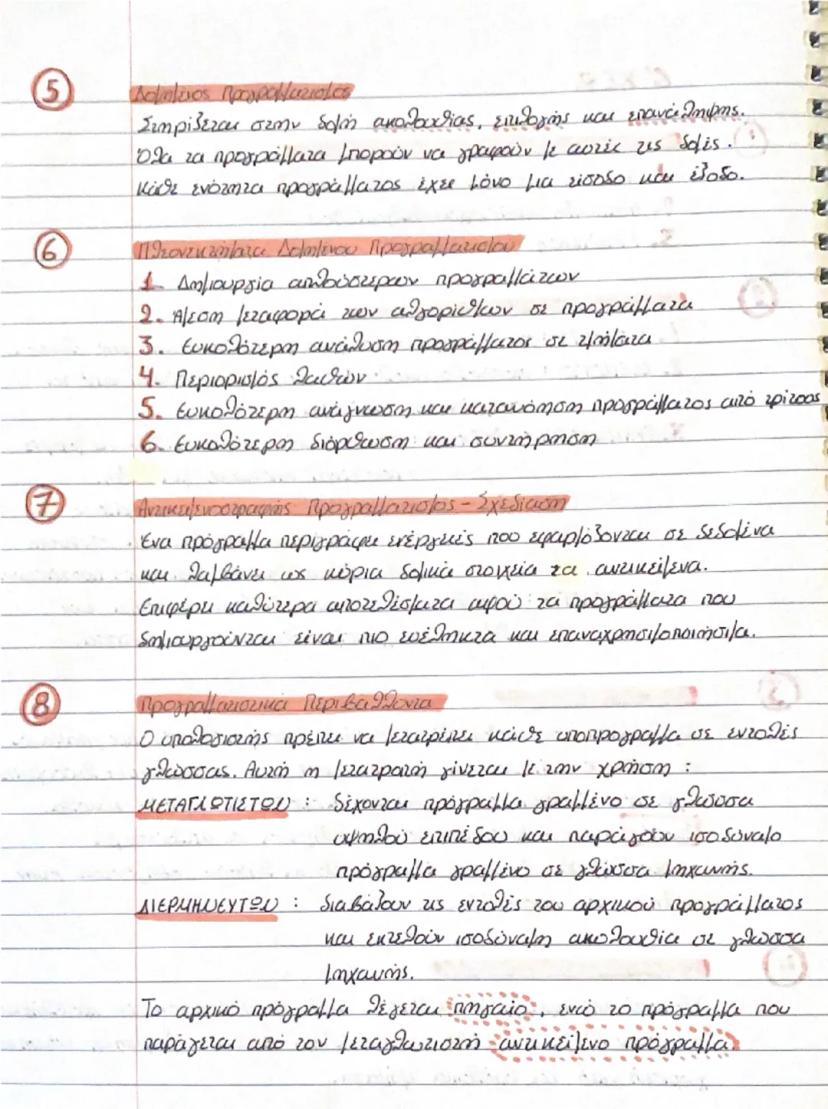 5 Δομημένος Προγραμματισμός
Στηρίζεται στην δομή ακολουθίας, επιλογής και επανάληψης.
Όλα τα προγράμματα μπορούν να γραφούν με αυτές τις δομές.
Κάθε ενότητα προγράμματος έχει μόνο μια είσοδο και έξοδο.
6 Πλεονεκτήματα Δομημένου Προγραμματισμού
1. Δημιουργία απλούστερων προγραμμάτων
2. Άμεση μεταφορά των αλγορίθμων σε προγράμματα
3. Ευκολότερη ανάλυση προγράμματος σε τμήματα
4. Περιορισμός λαθών
5. Ευκολότερη ανάγνωση και κατανόηση προγράμματος από τρίτους
6. Ευκολότερη διόρθωση και συντήρηση
7 Αντικειμενοστραφής Προγραμματισμός - Σχεδίαση
Ένα πρόγραμμα περιγράφει ενέργειες που εφαρμόζονται σε δεδομένα
και λαμβάνει ως κύρια δομικά στοιχεία τα αντικείμενα.
Επιφέρει καλύτερα αποτελέσματα αφού τα προγράμματα που
δημιουργούνται είναι πιο ευέλικτα και επαναχρησιμοποιήσιμα.
8 Προγραμματιστικά Περιβάλλοντα
Ο υπολογιστής πρέπει να μετατρέπει κάθε υποπρόγραμμα σε εντολές
γλώσσας. Αυτή η μετατροπή γίνεται με την χρήση :
ΜΕΤΑΓΛΩΤΙΣΤΩΝ : δέχονται πρόγραμμα γραμμένο σε γλώσσα
υψηλού επιπέδου και παράγουν ισοδύναμο
πρόγραμμα γραμμένο σε γλώσσα μηχανής.
ΔΙΕΡΜΗΝΕΥΤΩΝ : διαβάζουν τις εντολές του αρχικού προγράμματος
και εκτελούν ισοδύναμη ακολουθία σε γλώσσα
μηχανής.
Το αρχικό πρόγραμμα λέγεται πηγαίο, ενώ το πρόγραμμα που
παράγεται από τον μεταγλωττιστή αντικείμενο πρόγραμμα.